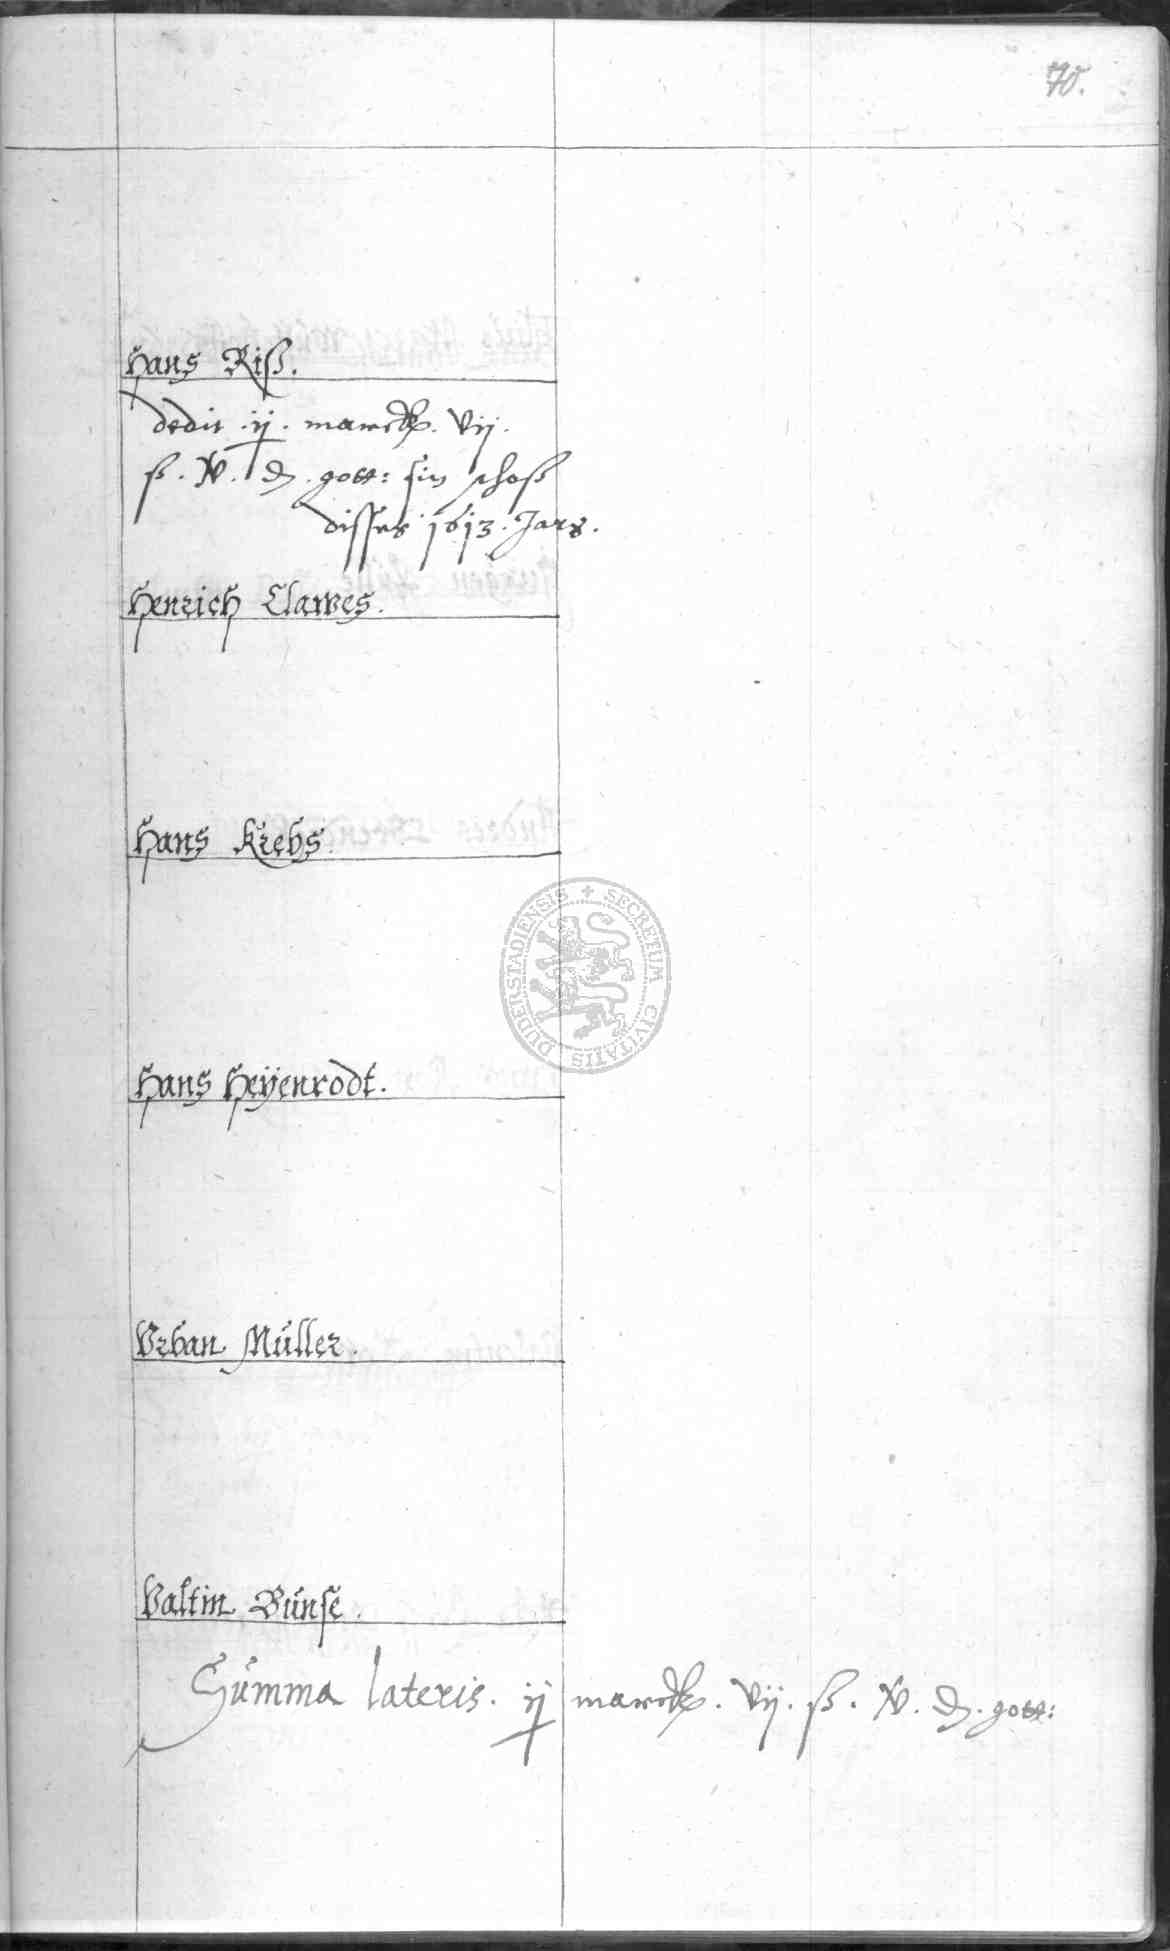 70.
Hans Riß.
dedit .ij. marck. vij.
ß. iv. d. gott: sin schoß
disses 1613. Jars.
Henrich Clawes.
Hans Krebs.
DUDERSTADIENSIS + SECRETUM CIVITATIS
Hans Heÿenrodt.
Vrban Müller.
Valtin Bünse.
Summa lateris. ij marck. vij. ß. iv. d. gott: